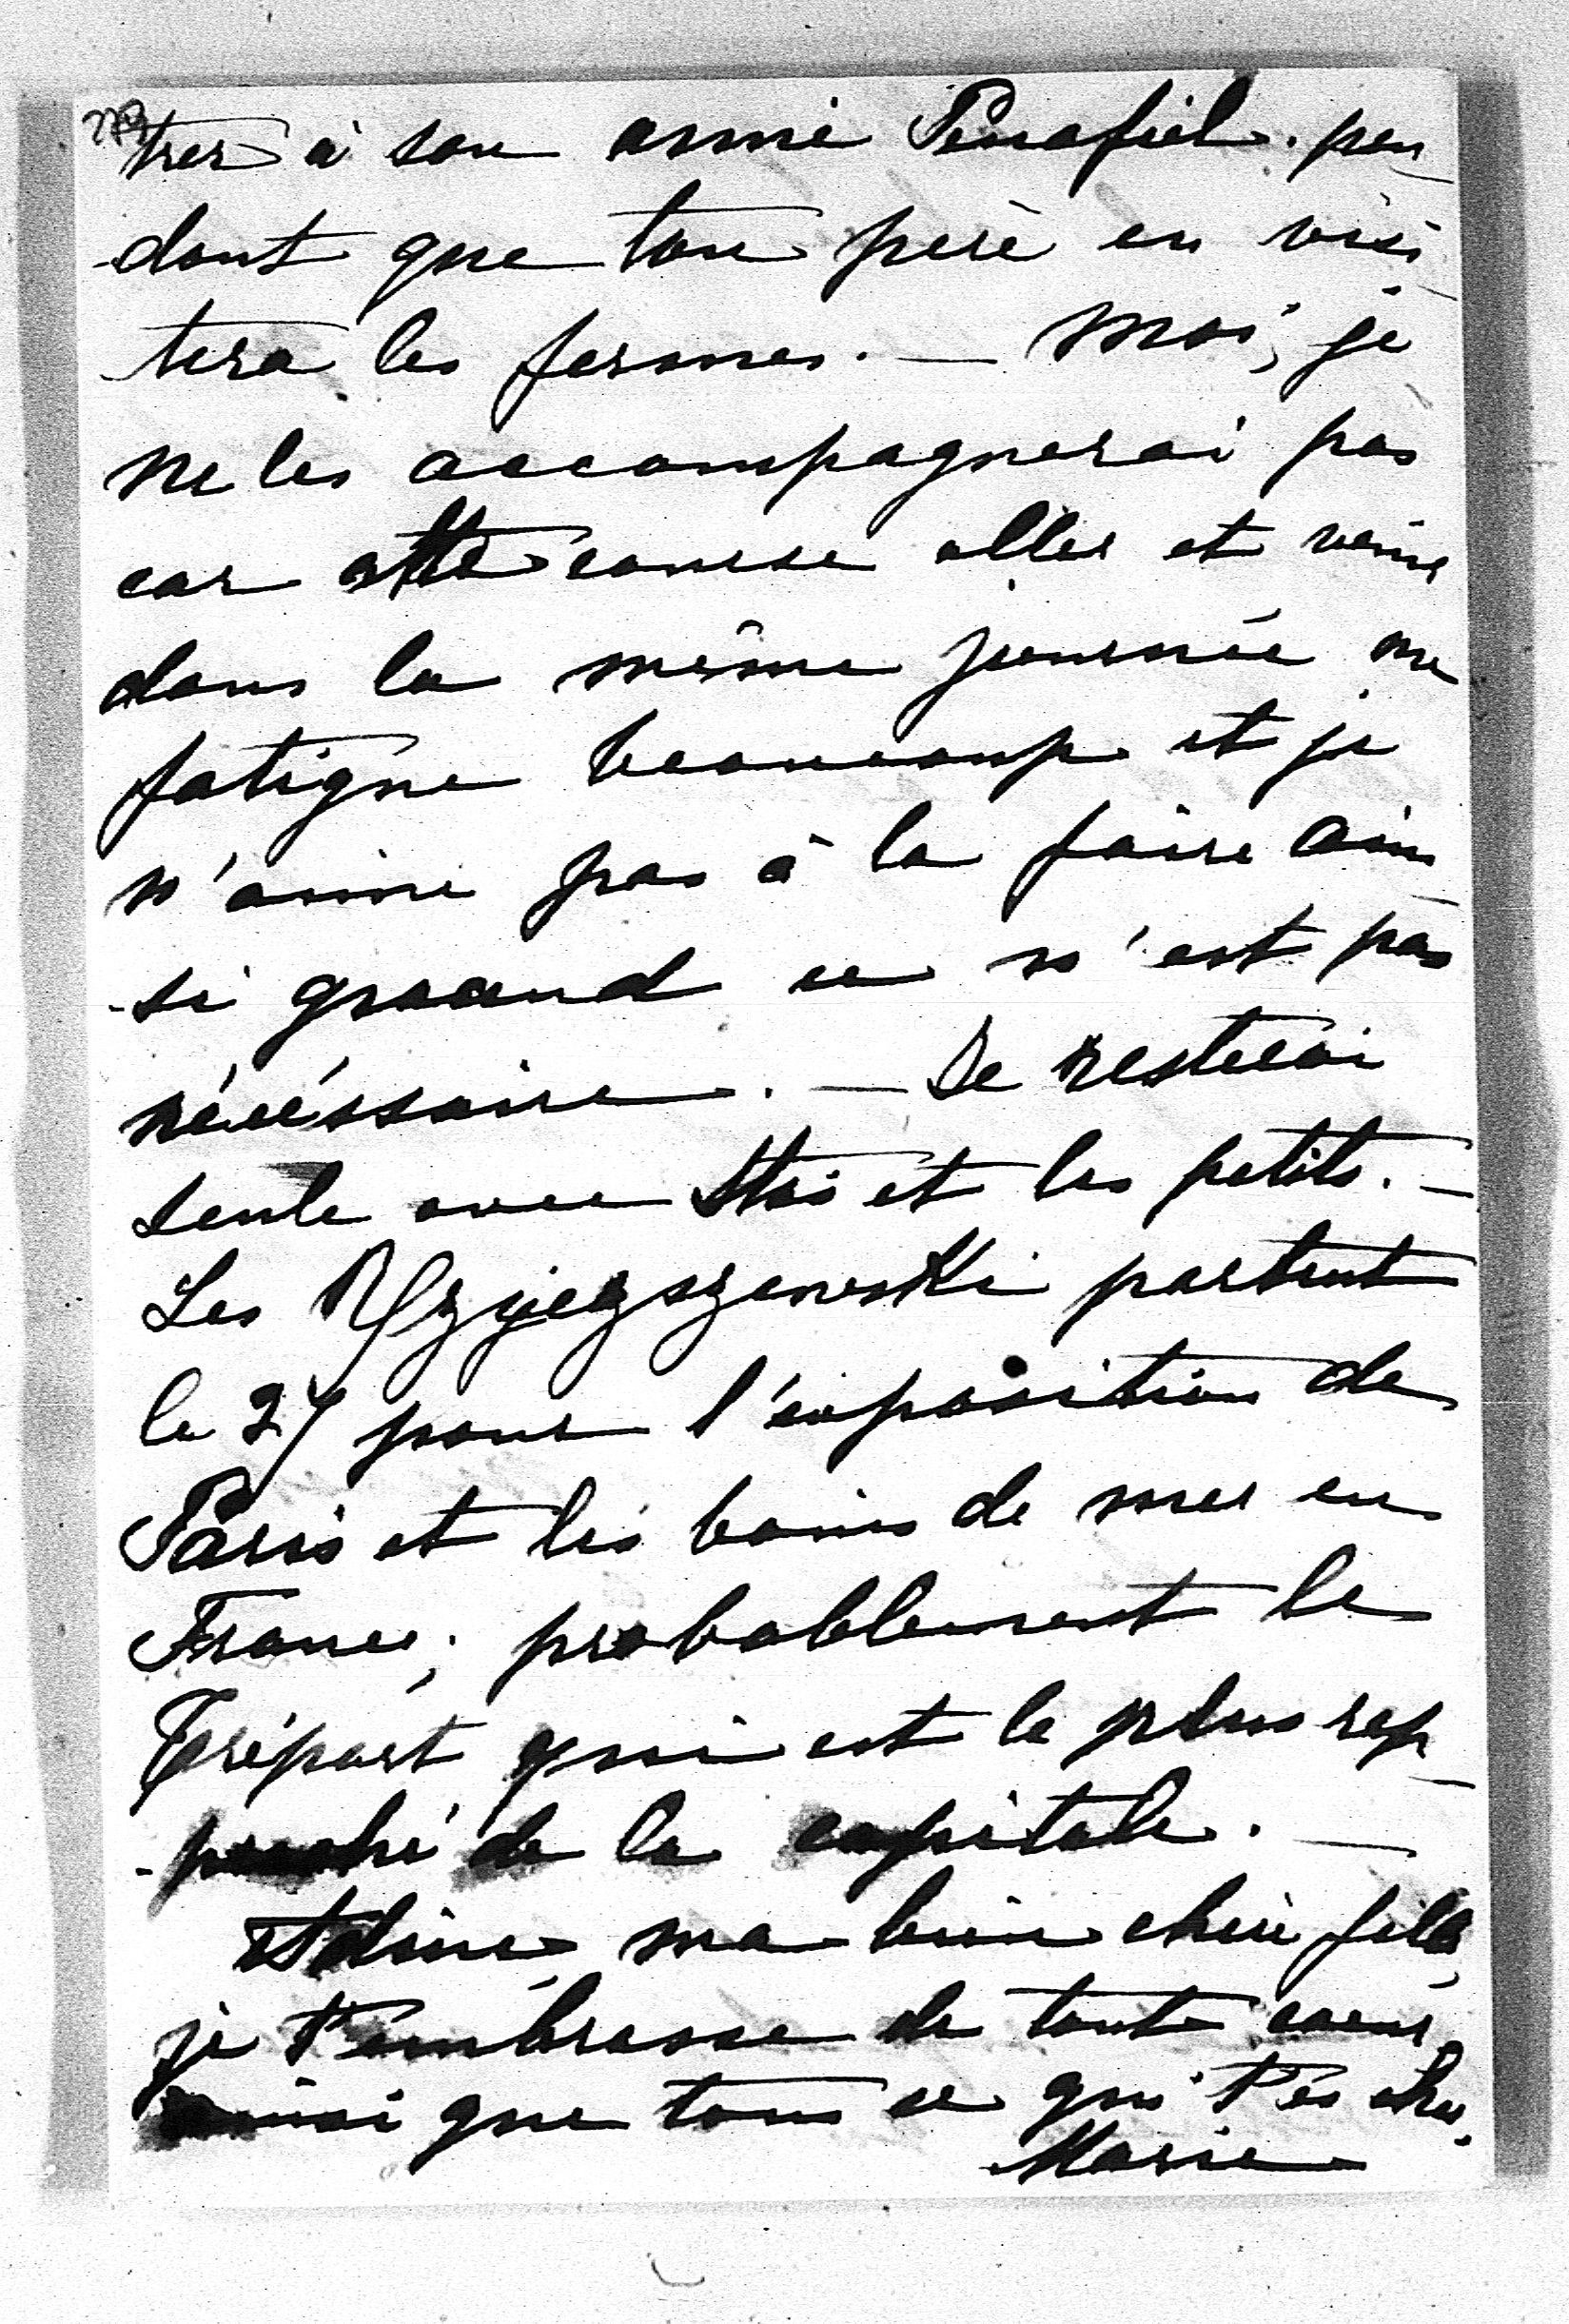 trer à son ami Penafiel. pen
dant que ton père en visi
tera les fermes. — Moi, je
ne les accompagnerai pas
car cette course aller et venir
dans la même journée me
fatigue beaucoup et je
n'aime pas à la faire ain
-si quand ce n'est pas
nécéssaire. — Je resterai
seule avec Stas et les petits. —
Les partent
le 27 pour l'exposition de
Paris et les bains de mer en
France; probablement le
Tréport qui est le plus rap
-proché de la capitale. —
Adine ma bien chère fille,
je t'embrasse de tout coeur
ainsi que tous ce qui t'es cher.
Marie